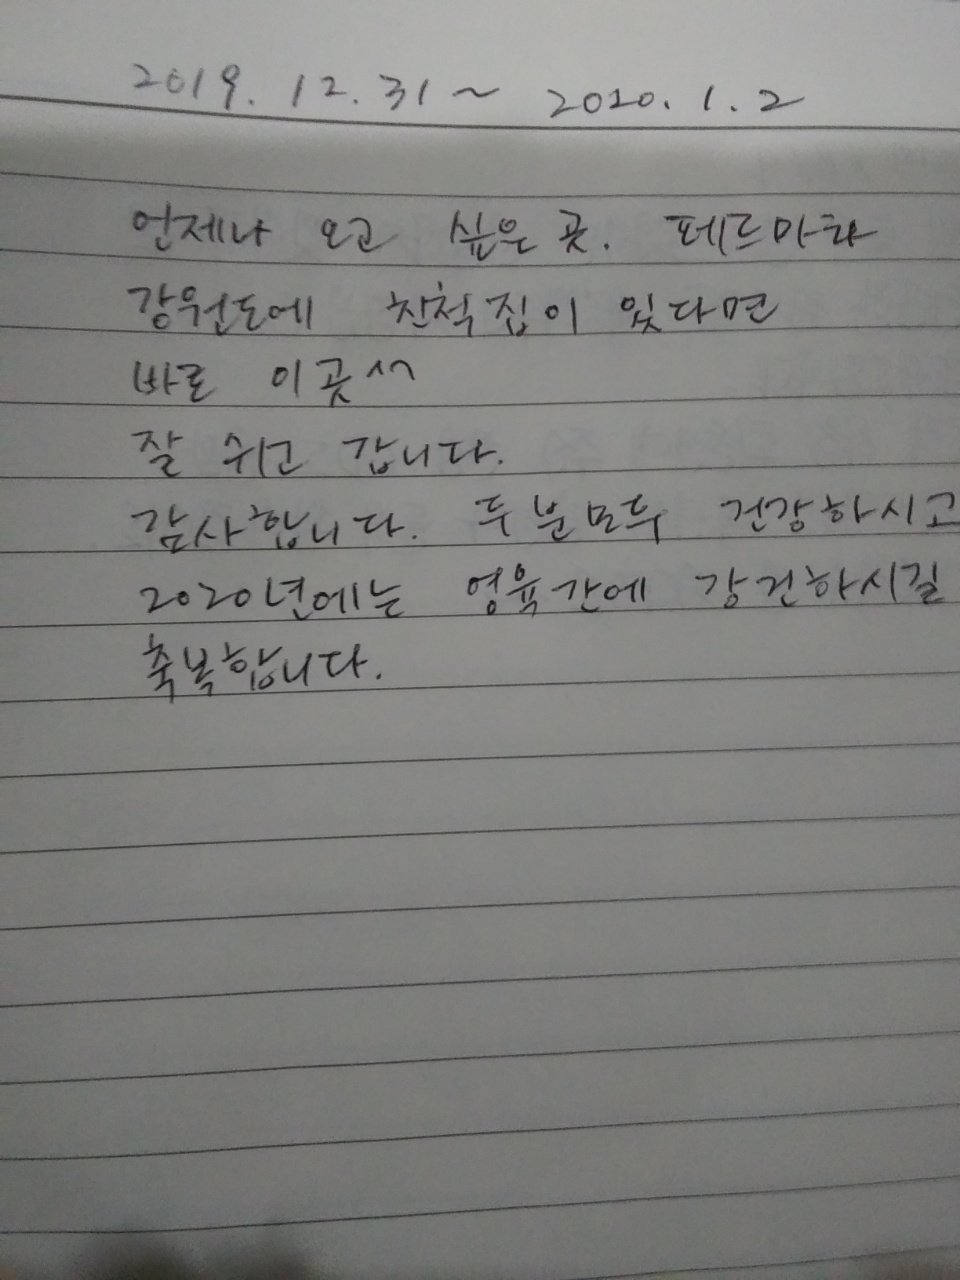 2019. 12. 31 ~ 2020. 1. 2
언제나 오고 싶은 곳. 페르마타
강원도에 친척집이 있다면
바로 이곳^^
잘 쉬고 갑니다.
감사합니다. 두분모두 건강하시고
2020년에는 영육간에 강건하시길
축복합니다.